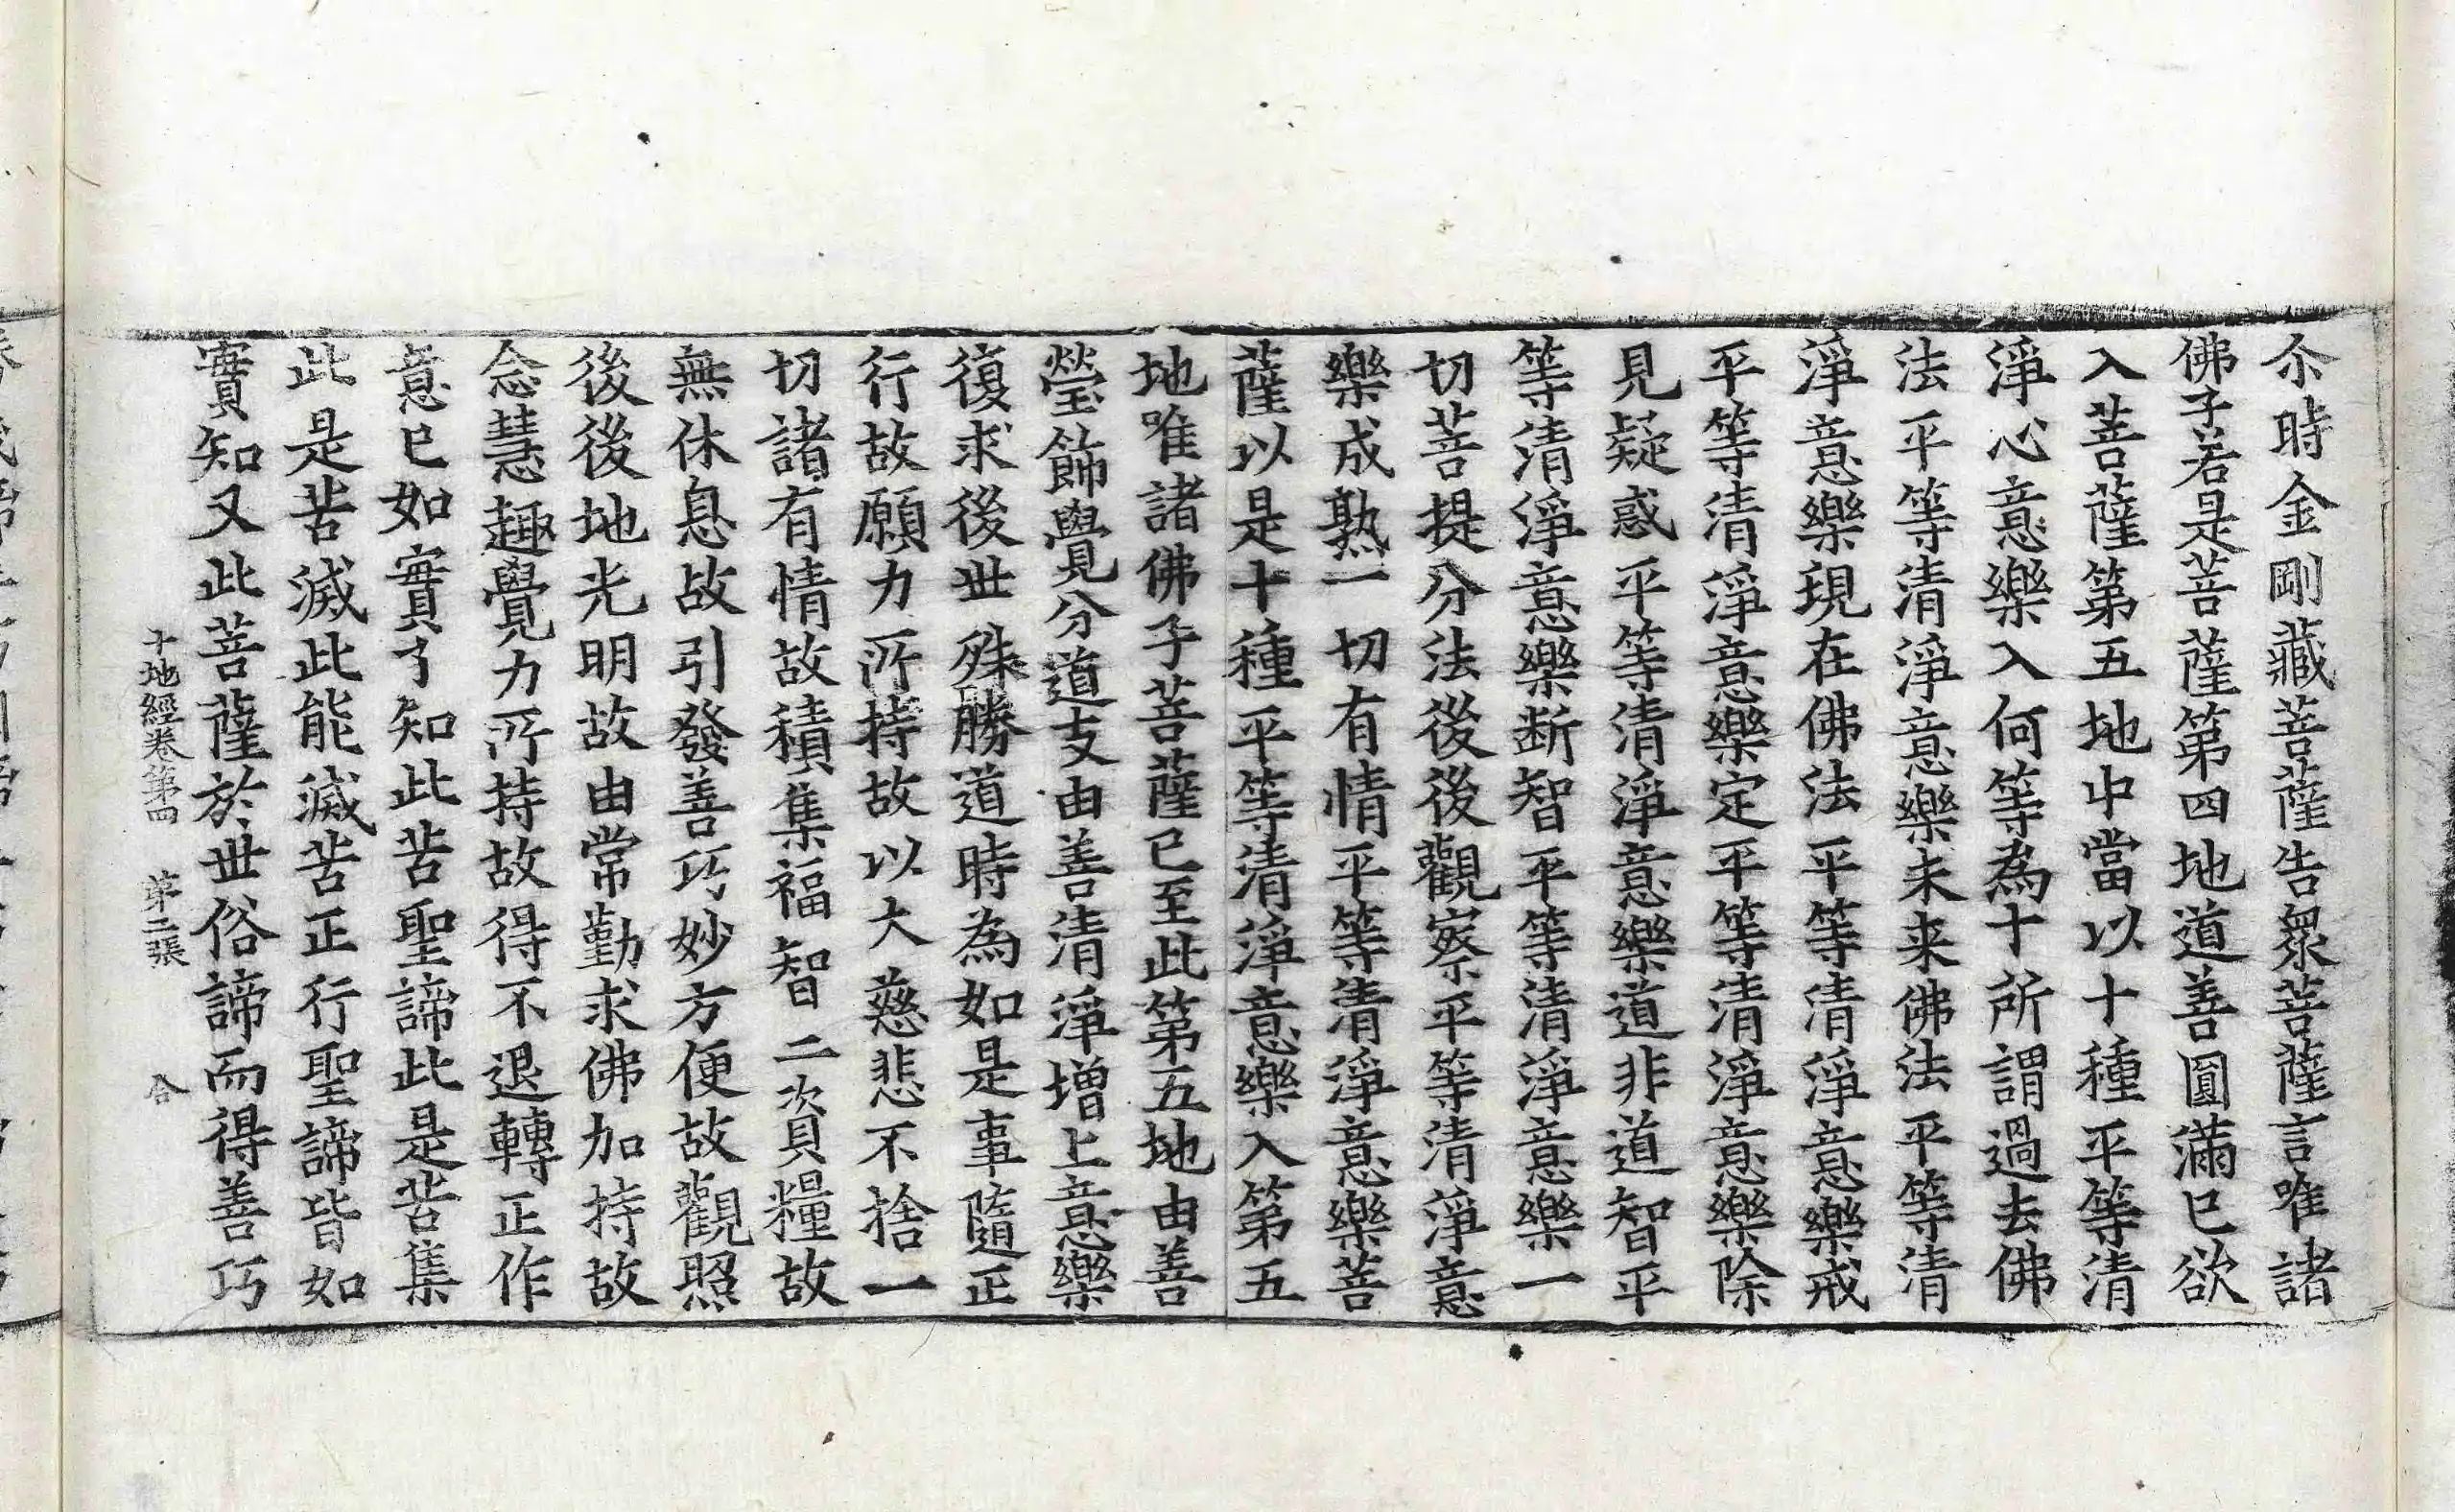 尒時金剛藏菩薩告衆菩薩言唯諸
佛子若是菩薩第四地道善圓滿已欲
入菩薩第五地中當以十種平等清
淨心意樂入何等為十所謂過去佛
法平等清淨意樂未来佛法平等清
淨意樂現在佛法平等清淨意樂戒
平等清淨意樂定平等清淨意樂除
見疑惑平等清淨意樂道非道智平
等清淨意樂断智平等清淨意樂一
切菩提分法後後觀察平等清淨意
樂成熟一切有情平等清淨意樂菩
薩以是十種平等清淨意樂入第五
地唯諸佛子菩薩已至此第五地由善
瑩飾覺分道支由善清淨增上意樂
復求後世殊勝道時為如是事隨正
行故願力所持故以大慈悲不捨一
切諸有情故積集福智二資糧故
無休息故引發善巧妙方便故觀照
後後地光明故由常勤求佛加持故
念慧趣覺力所持故得不退轉正作
意已如實了知此苦聖諦此是苦集
此是苦滅此能滅苦正行聖諦皆如
實知又此菩薩於世俗諦而得善巧
十地經卷第四　第二張　合